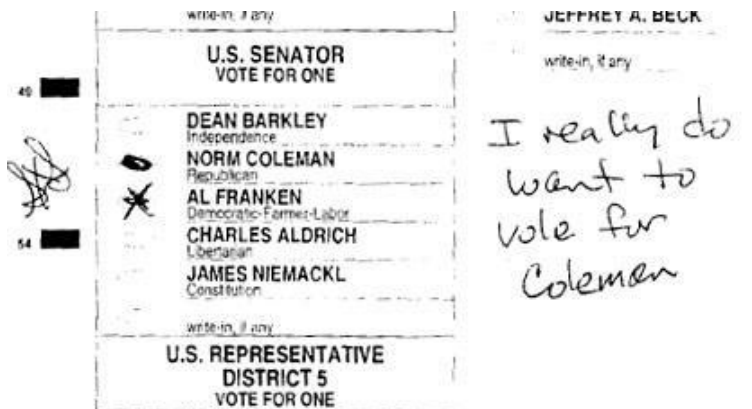 write-in, if any
U.S. SENATOR
VOTE FOR ONE
49
DEAN BARKLEY
Independence
NORM COLEMAN
Republican
AL FRANKEN
Democratic-Farmer-Labor
CHARLES ALDRICH
Libertarian
54
JAMES NIEMACKL
Constitution
write-in, if any
U.S. REPRESENTATIVE
DISTRICT 5
VOTE FOR ONE
JEFFREY A. BECK
write-in, if any
I really do
want to
vote for
Coleman